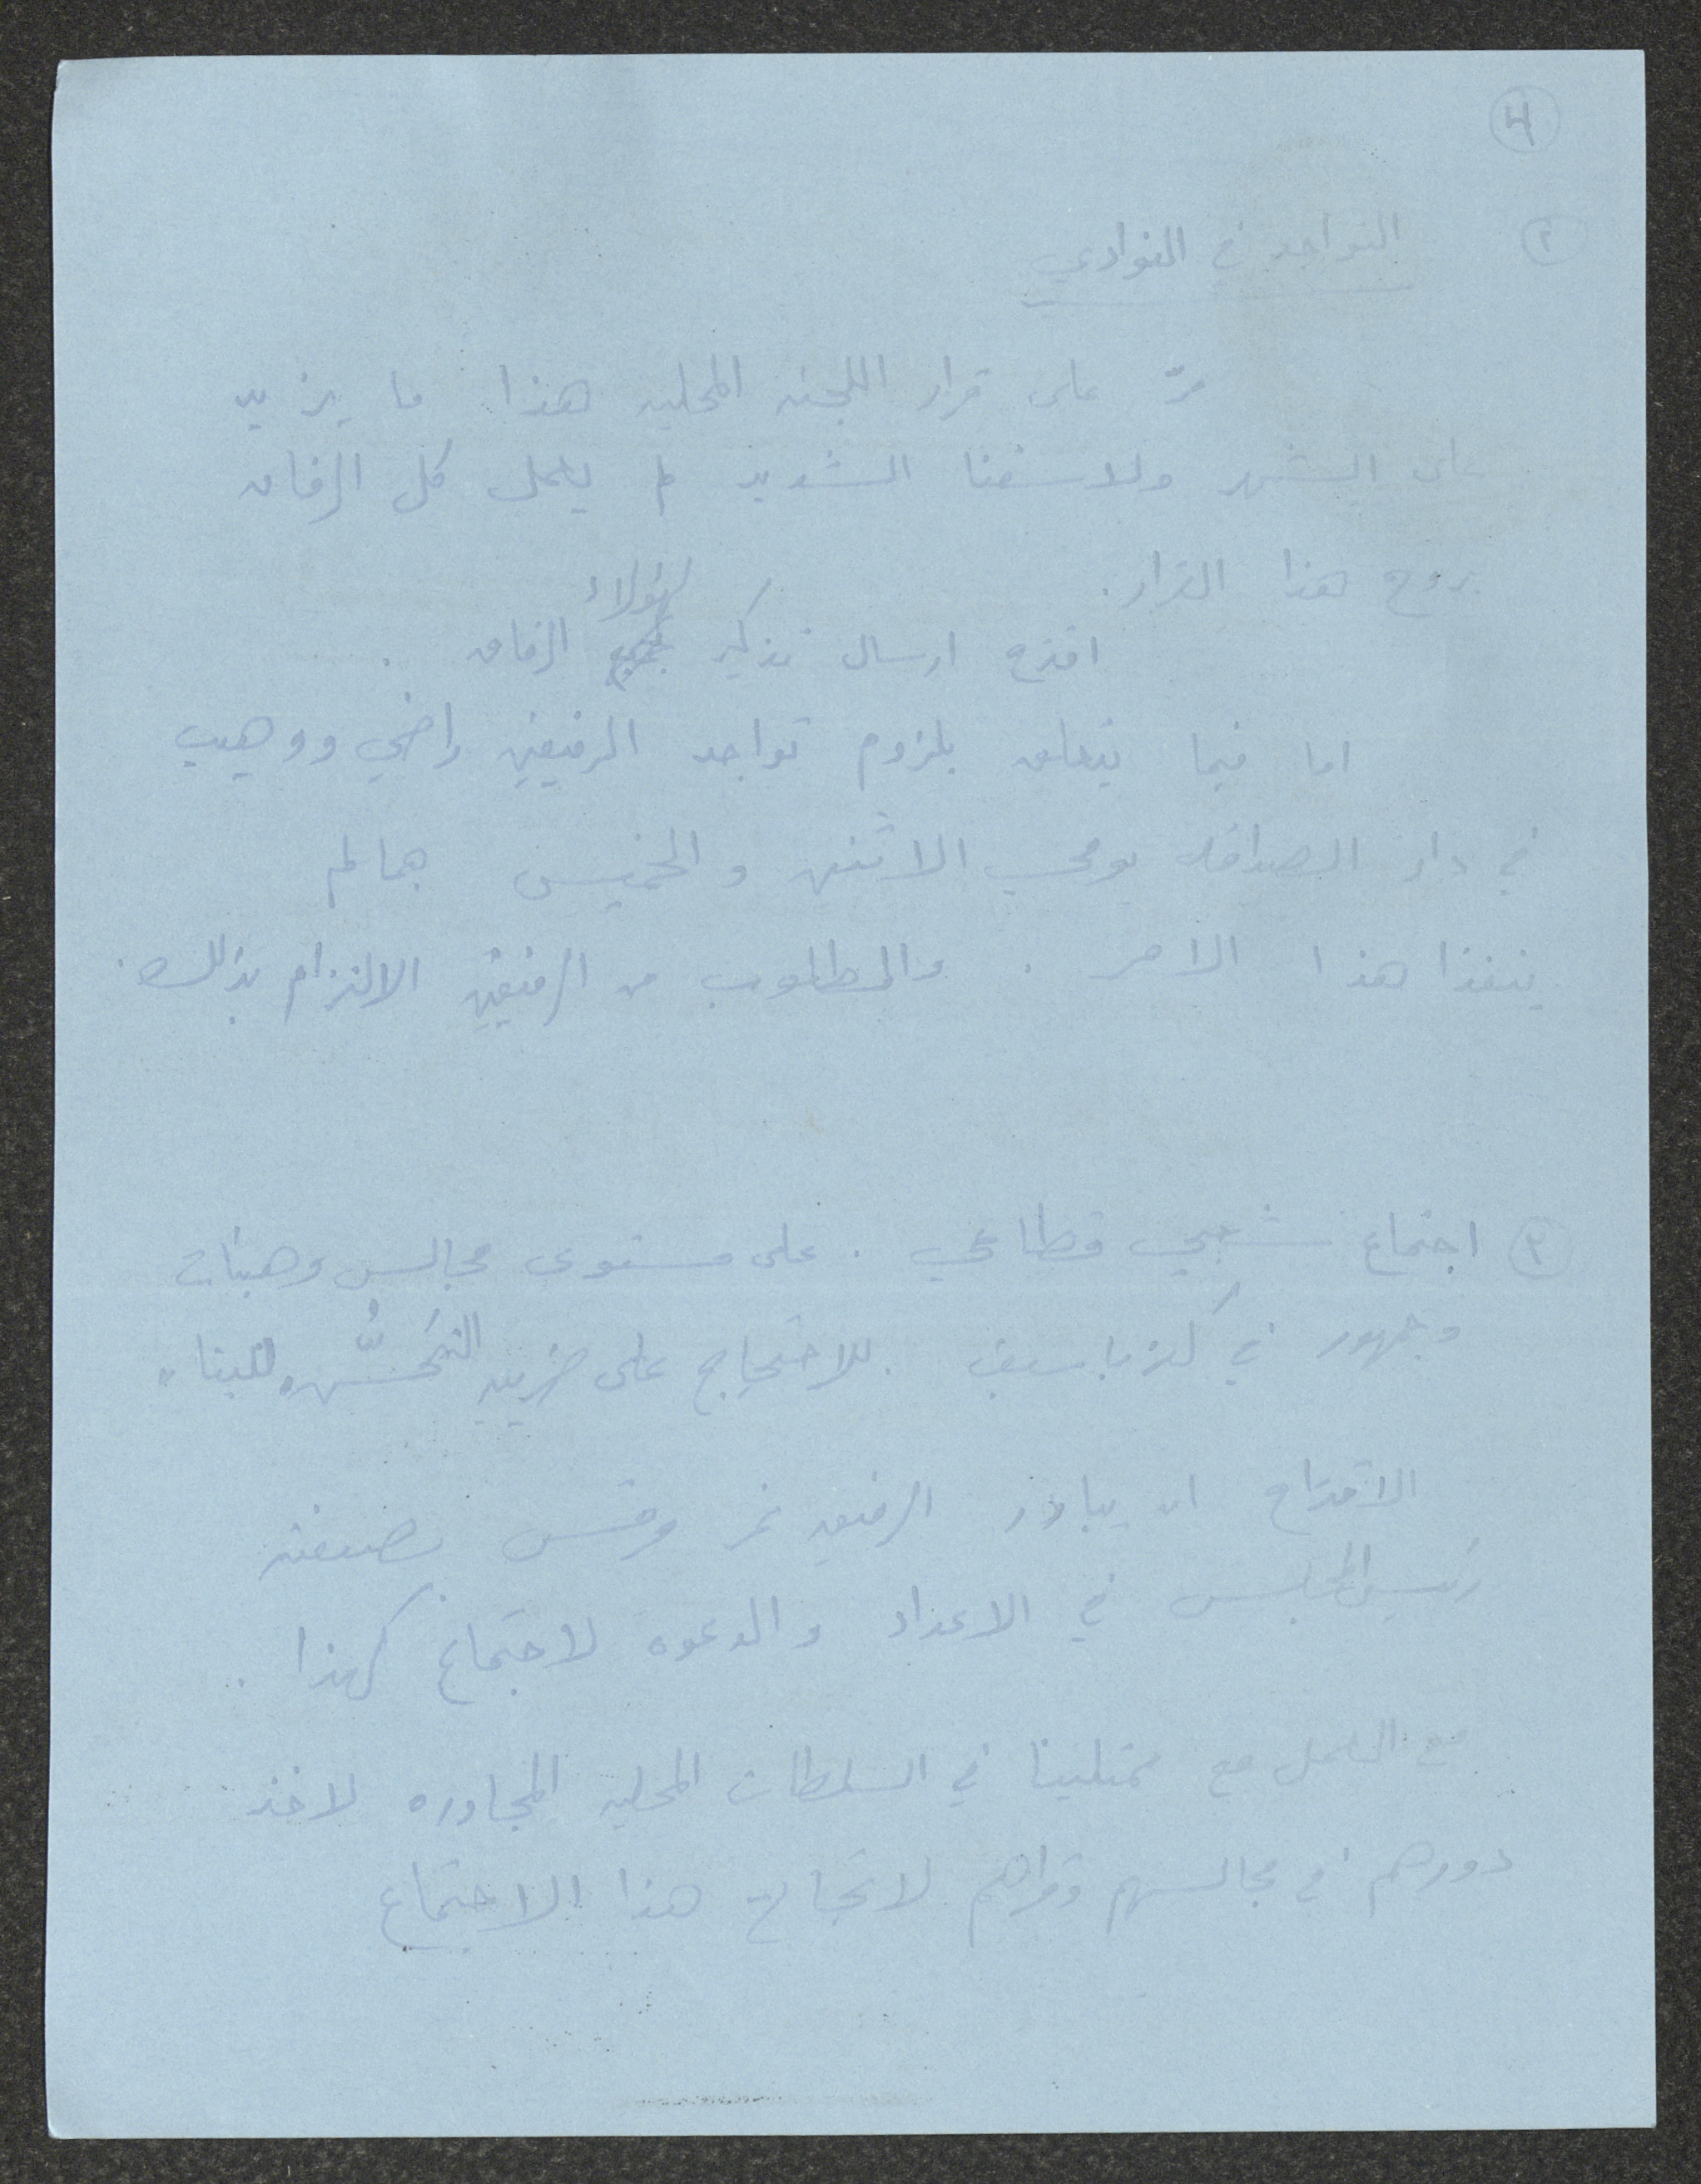 4
٢ التواجد في النوادي
مرّ على قرار اللجنه المحليه هذا ما يزيد
على الشهر ولاسفنا الشديد لم يعمل كل الرفاق
بروح هذا القرار.
لهؤلاء
اقترح ارسال تذكير لجميع الرفاق .
اما فيما يتعلق بلزوم تواجد الرفيقين راضي ووهيب
في دار الصداقه يومي الاثنين والخميس هما لم
ينفذا هذا الامر . والمطلوب من الرفيقين الالتزام بذلك .
٣ اجتماع شعبي قطاعي . على مستوى مجالس وهيئات
وجمهور في كفرياسيف . للاحتجاج على ضريبة التحسين للبناء
الاقتراح ان يبادر الرفيق نمر مرقس بصفته
رئيس المجلس في الاعداد والدعوه لاجتماع كهذا .
مع العمل مع ممثلينا في السلطات المحليه المجاوره لاخذ
دورهم في مجالسهم وقراهم لانجاح هذا الاجتماع